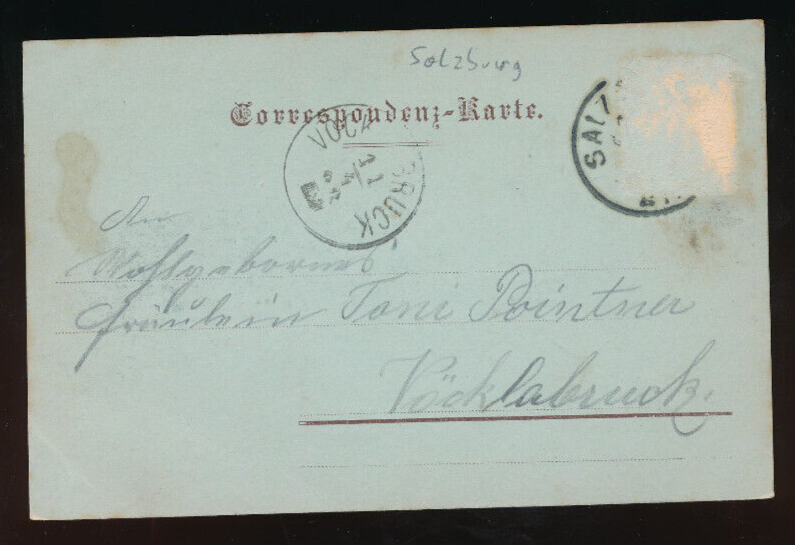 Salzburg
Correspondenz-Karte.
VÖCK BRUCK
11
SALZ
An
Wohlgebornes
Fräulein Toni Pointner
Vöcklabruck.